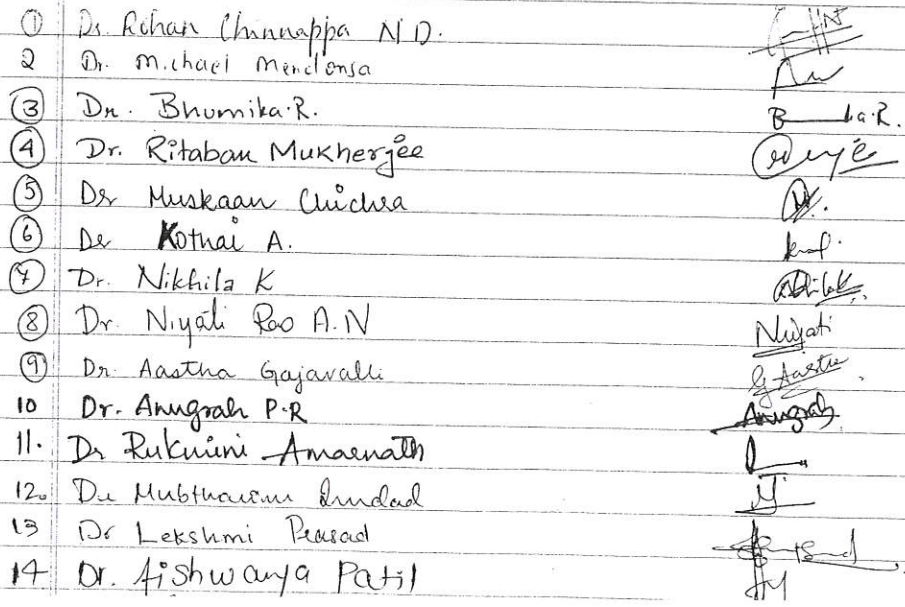 1 Dr. Rohan Chinnappa N D.
2 Dr. Michael Mendonsa
3 Dr. Bhumika.R. B a.R.
4 Dr. Ritaban Mukherjee
5 Dr Muskaan Chichra
6 Dr Kothai A.
7 Dr. Nikhila K
8 Dr. Niyati Rao A.N Niyati
9 Dr. Aastha Gajavalli G Aastha
10 Dr. Anugrah P.R Anugrah
11. Dr Rukmini Amarnath
12. Dr
13 Dr Lekshmi Prasad
14 Dr. Aishwarya Patil